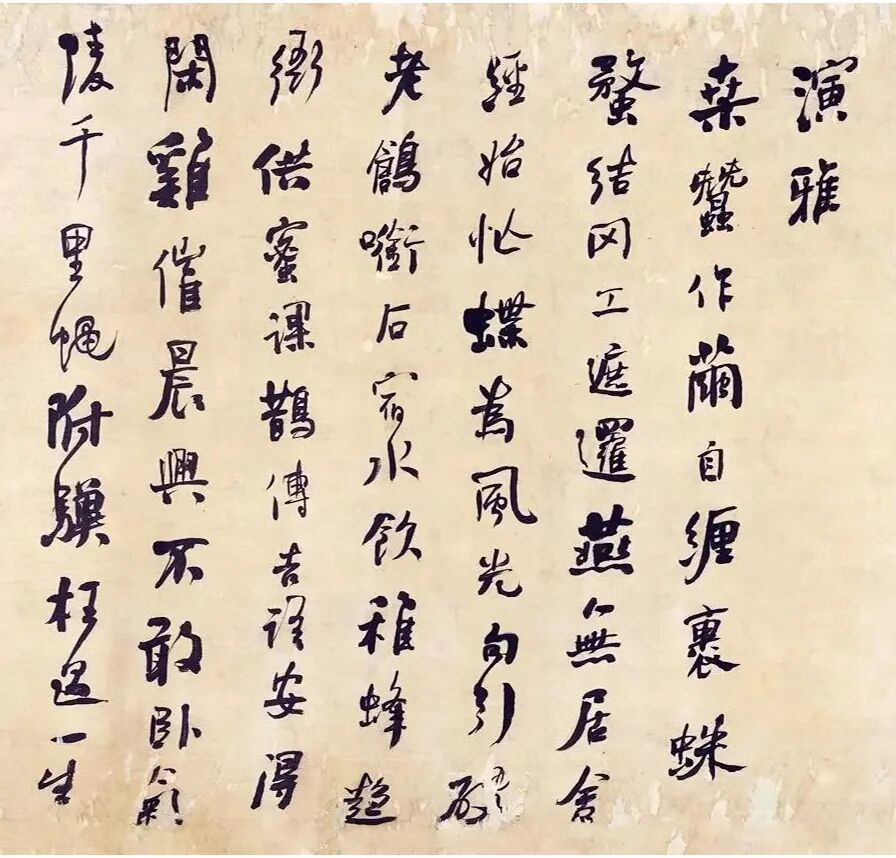 演雅
桑蠶作繭自纏裹蛛
蝥結网工遮邏燕無居舍
經始忙蝶為風光句引破
老鶬㘅石宿水飲稚蜂趨
衙供蜜課鵲傳吉語安得
閑雞催晨興不敢臥氣
陵千里蠅附驥枉過一生